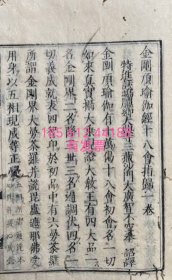 金剛頂瑜伽經十八會指歸一卷
特進試鴻臚卿大興善寺三藏沙門大廣智不空奉 詔譯
金剛頂經瑜伽有十萬偈十八會初會名一切
如來真實攝大乘現證大教王有四大品一
名金剛界二名降三世三名遍調伏四名一
切義成就表四智印於初品中有六曼荼羅
所謂金剛界大曼荼羅并說毗盧遮那佛受
用身以五相現成等正覺